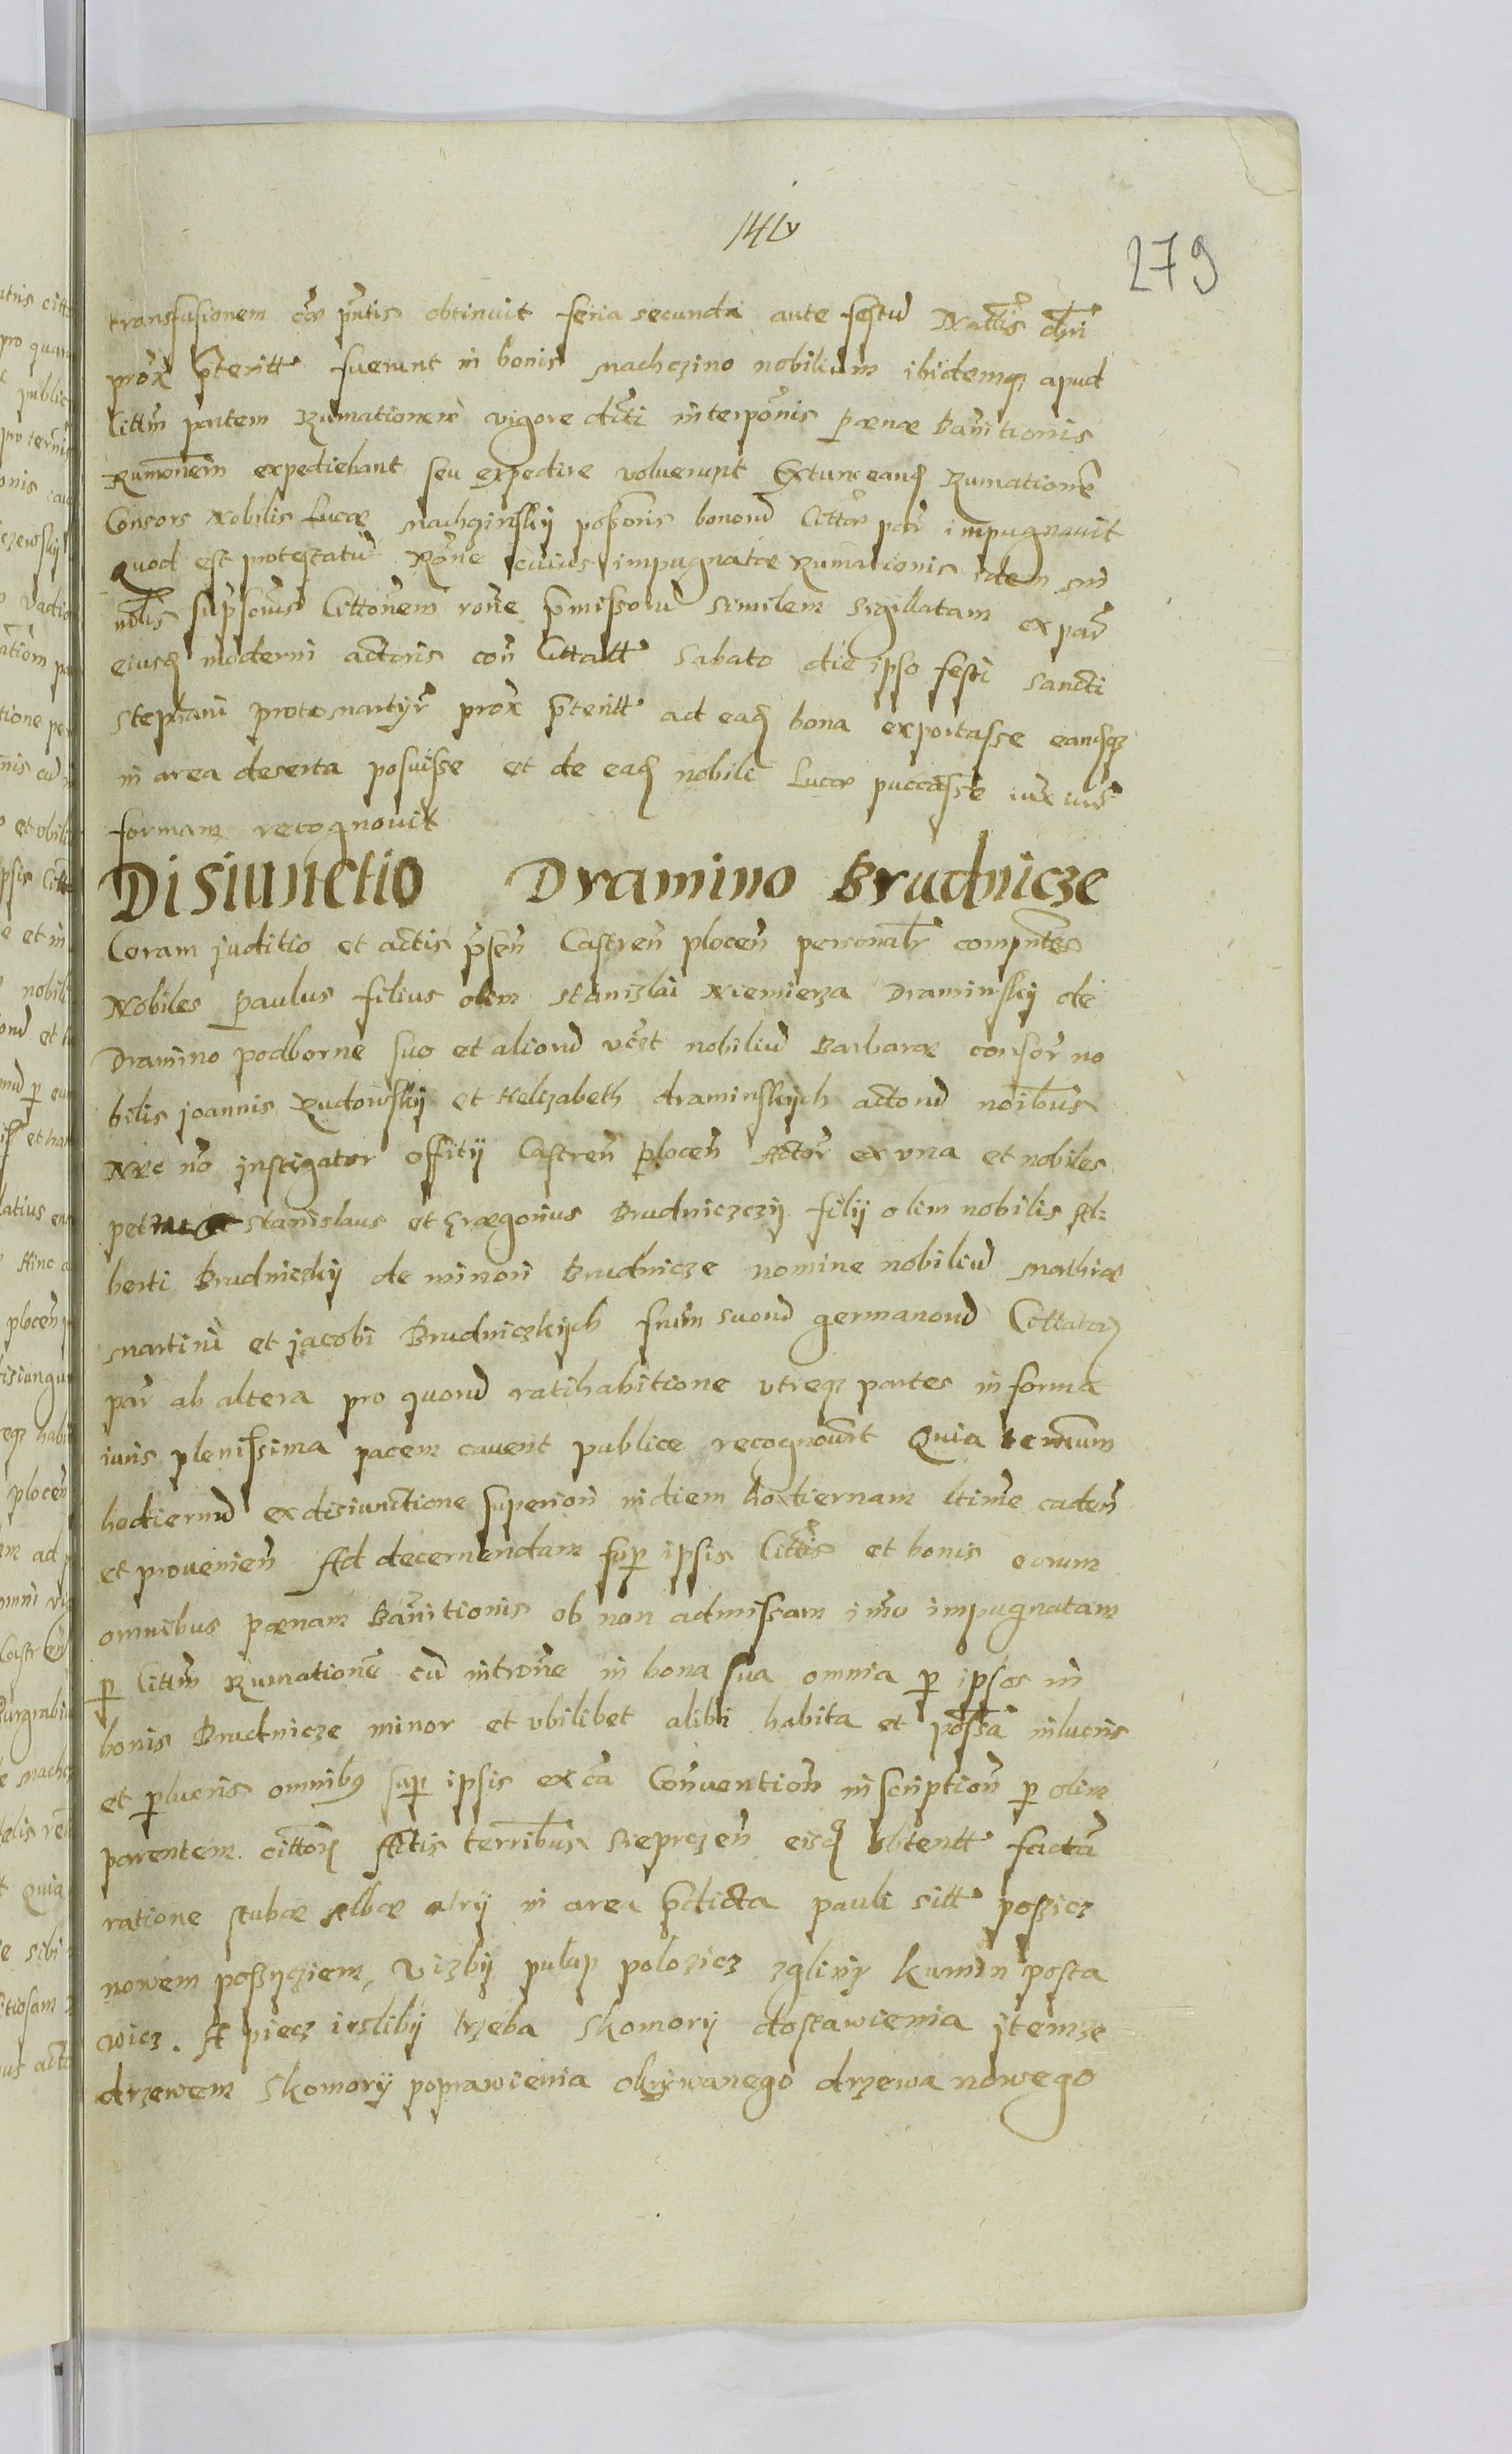 279
transfusionem coram pntis obtinuit feria secunda ante festu Nattis dni
prox pteritt fuerunt in bonis Machczino nobilium ibidemq apud
Cittm partem Rumationem vigore dicti interponis pænæ banitionis
Rumonem expediebant seu expedire voluerunt Extunc eand Rumatione
Consors Nobilis Lucæ Machczinskij possoris bonoru Cittæ par impugnavit
quod est protestatu Rone cuius impugnatæ Rumationis idem
nobis Cittonem rone pmissoru similem sigillatam ex par
eiusd moderni actoris con Cittatt Sabato die ipso festi Sancti
Stephani protomartyr prox pteritt ad ead bona exportasse eandq
in area deserta posuisse et de ead nobili Lucæ iux iuris
formam recognovit
Disiunctio Dramino Brudnicze
Coram juditio et actis psen Castren plocen personalr compntes
Nobiles Paulus filius olim Stanislai Niemierza Draminskij de
Dramino podborne suo et alioru vczt nobiliu Barbaræ consor no
bilis joannis Rudowskij et Helizabeth draminskijch actoru noibus
Nec no jnstigator offitij Castren Plocen Actor ex una et nobiles
petrus Stanislaus et Grægorius Brudniczczij filij olim nobilis Al:
berti Brudniczkij de minori Brudnicze nomine nobiliu Mathiæ
Martini et jacobi Brudniczkijch frum suoru germanoru Cittator
par ab altera pro quoru ratihabitione utreq partes in forma
iuris plenissima pacem cavent publice recognovrt Quia terminum
hodiernu ex disiunctione superiori in diem hodiernam ltime caden
et provenien Ad decernendam sup ipsis Cittis et bonis eorum
omnibus pænam Banitionis ob non admissam imo impugnatam
p Cittm Rumatione cu introne in bona sua omnia p ipsos in
bonis Brudnicze minor et ubilibet alibi habita et possa in lucris
et plucris omnibq sup ipsis ex ca Convention inscription p olim
parentem cittor Actis terribus Sieprczen eisd obtentt factam
ratione stubæ albæ in area pdicta pauli sitt poszicz
nowem poszyciem, Vizbij pulap polozicz zgliny kumin posta
wicz. A piecz iesliby trzeba Skomory dostawienia jtemze
drzewem Skomorij poprawienia drzewa nowego